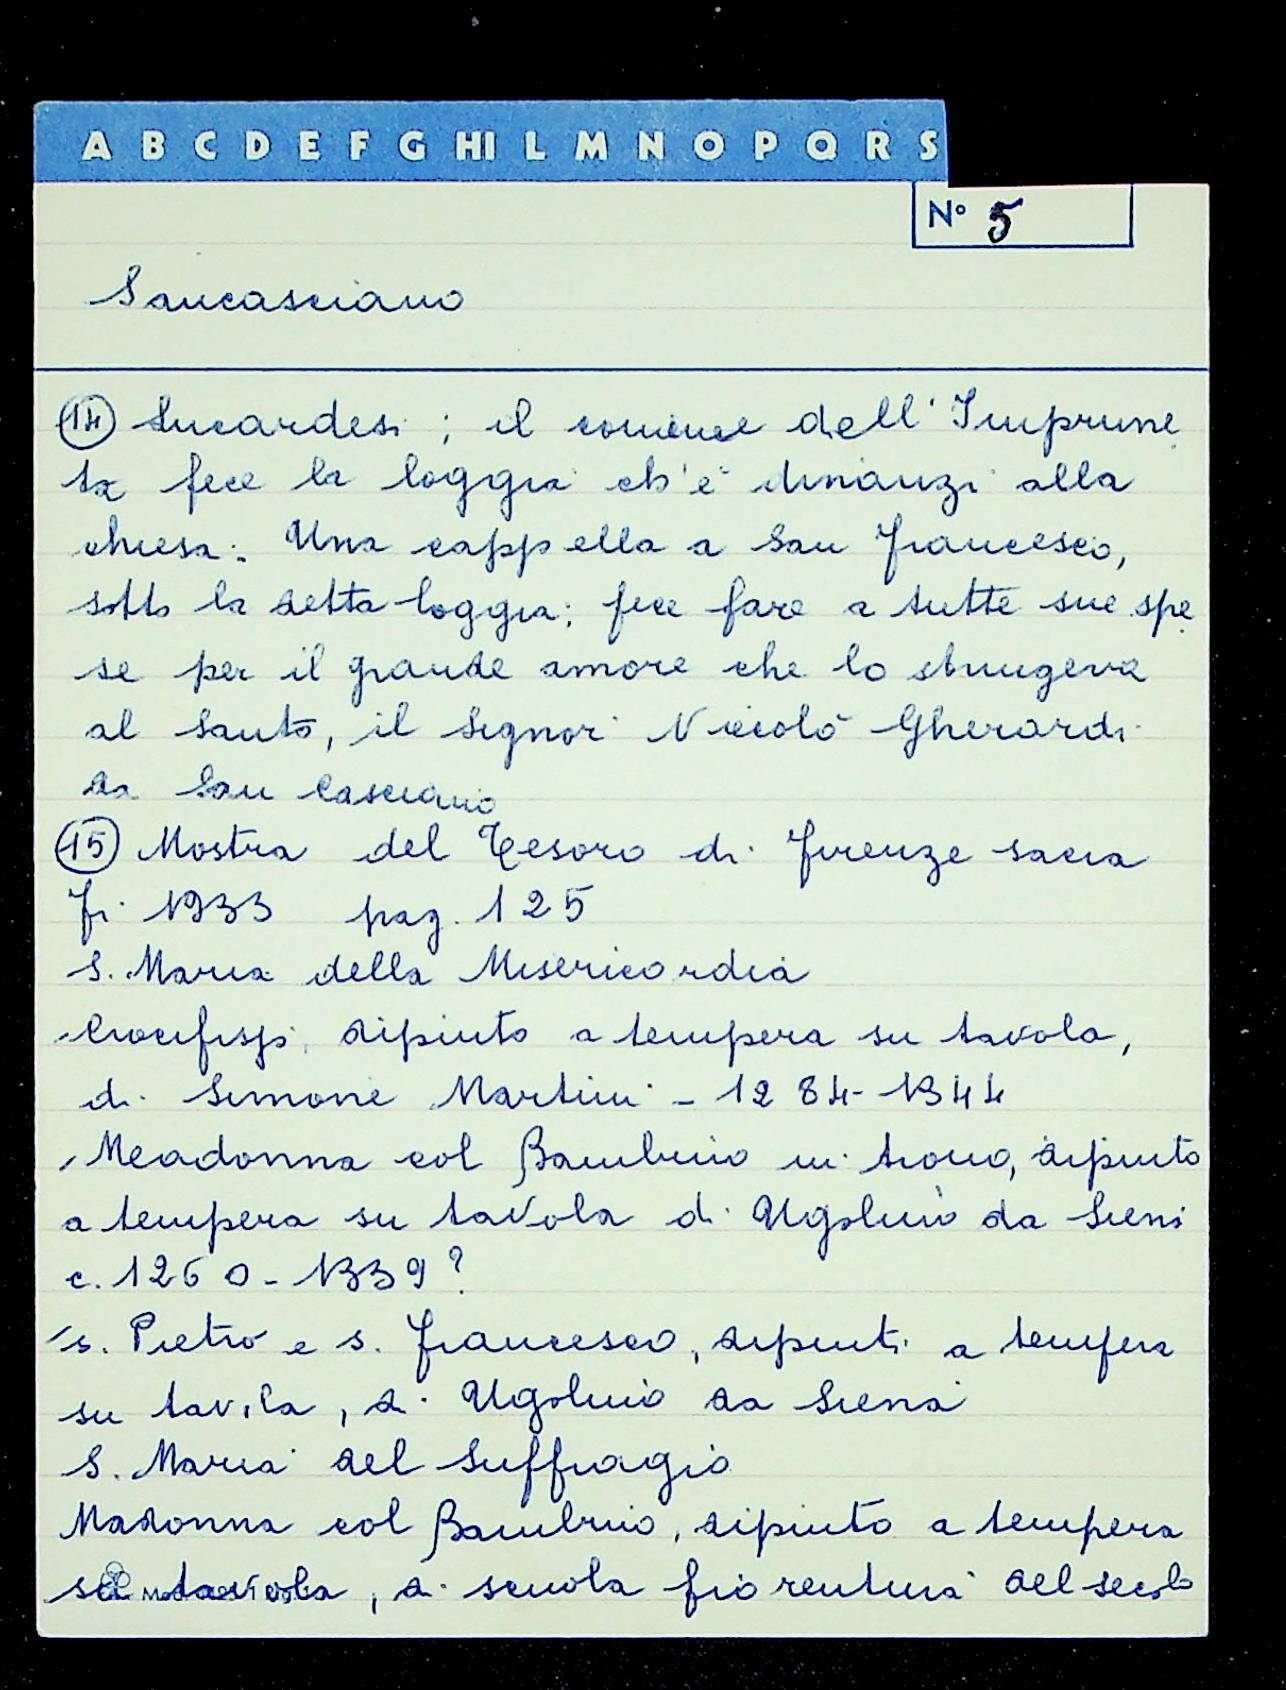 A B C D E F G HI L M N O P Q R S
N° 5
Sancasciano
14 Lucardesi; il comune dell'Imprune
ta fece la loggia ch'è dinanzi alla
chiesa. Una cappella a San Francesco,
sotto la detta loggia; fece fare a tutte sue spe
se per il grande amore che lo stringeva
al Santo, il Signor Niccolò Gherardi
da San Casciano
15 Mostra del Tesoro di Firenze sacra
Fi 1933 pag. 125
S. Maria della Misericordia
Crocifisso, dipinto a tempera su tavola,
di Simone Martini - 1284-1344
Meadonna col Bambino in trono, dipinto
a tempera su tavola di Ugolino da Siena
c. 1260-1339?
S. Pietro e S. Francesco, dipinti a tempera
su tavila, di Ugolino da Siena
S. Maria del Suffragio
Madonna col Bambino, dipinto a tempera
su tavola, di scuola fiorentina del secolo